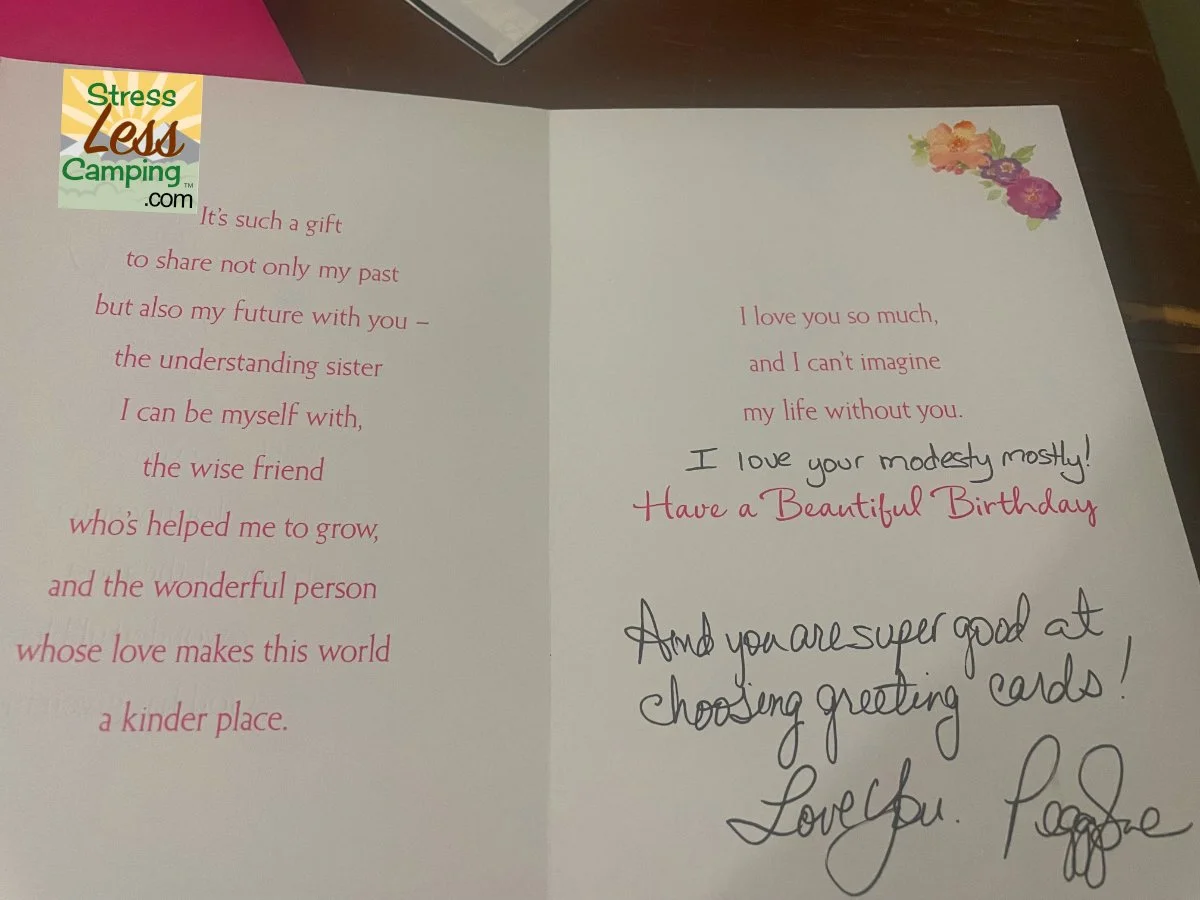 Stress
Less
Camping™
.com
It's such a gift
to share not only my past
but also my future with you –
the understanding sister
I can be myself with,
the wise friend
who's helped me to grow,
and the wonderful person
whose love makes this world
a kinder place.
I love you so much,
and I can't imagine
my life without you.
I love your modesty mostly!
Have a Beautiful Birthday
And you are super good at
choosing greeting cards!
Love You. PeggySue